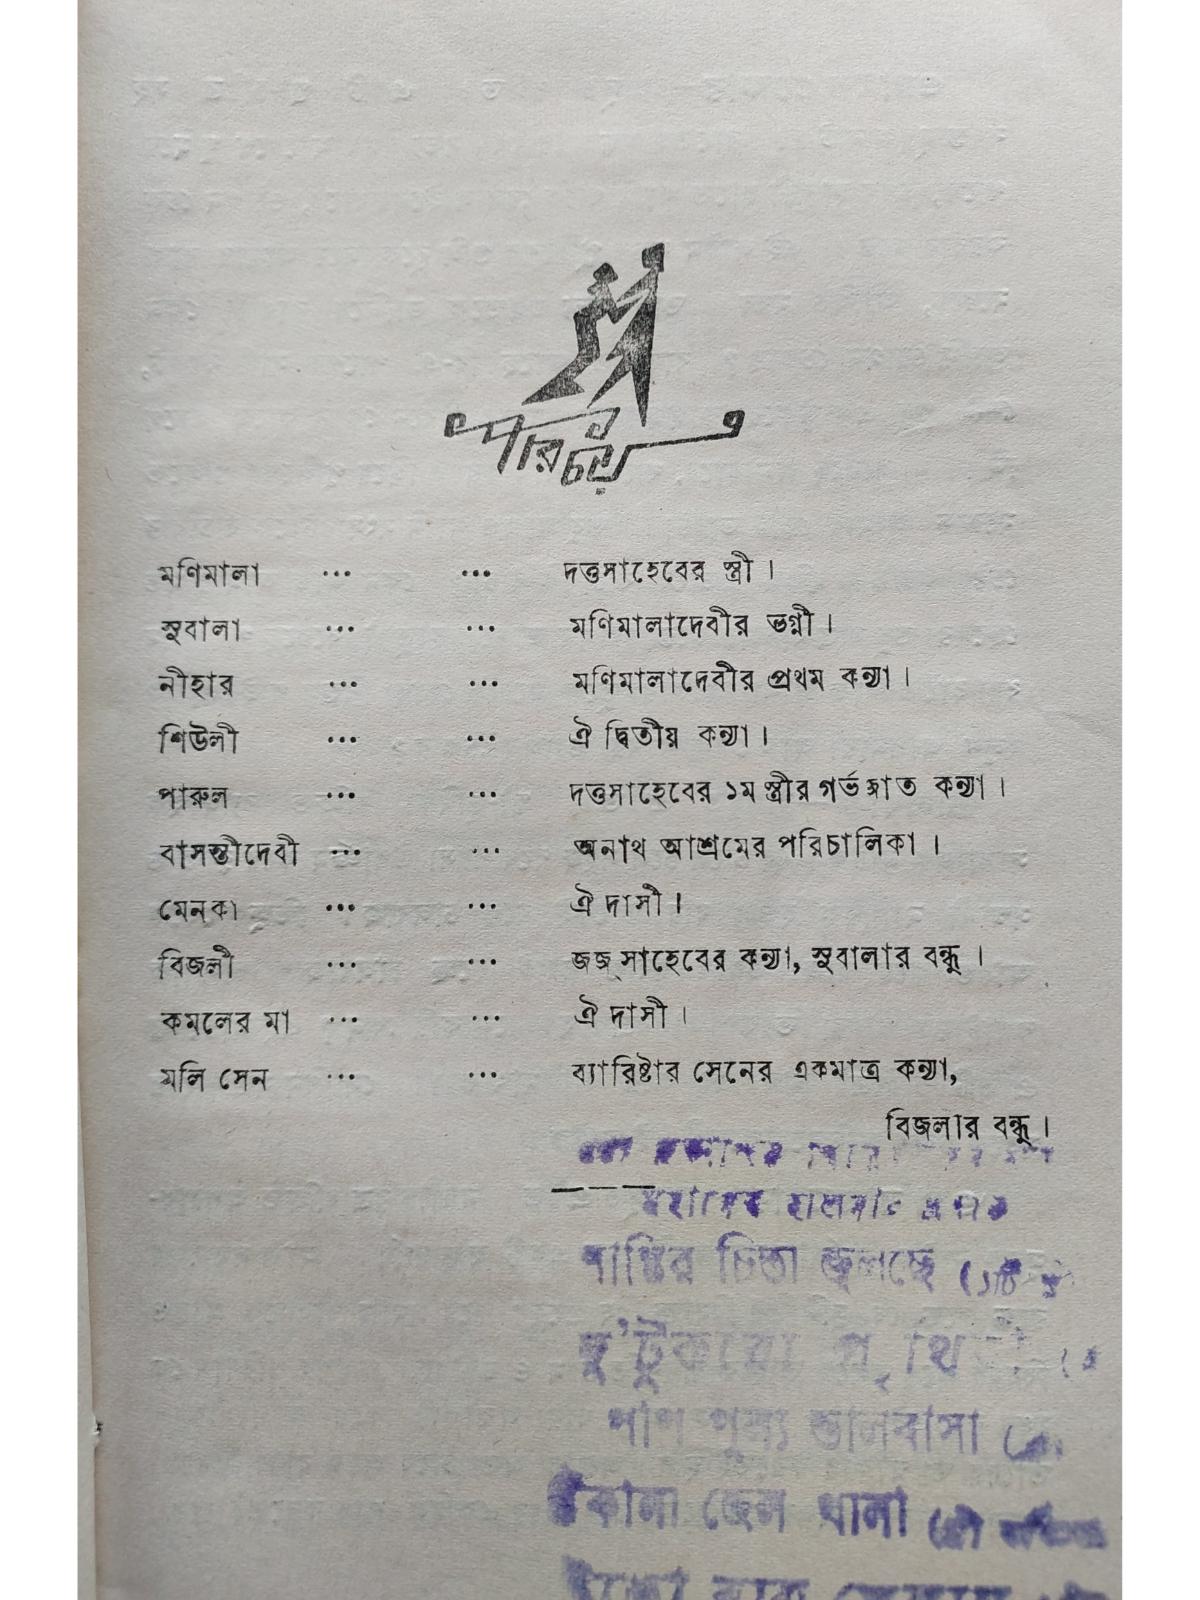 পরিচয়
মণিমালা ... ... দত্তসাহেবের স্ত্রী ।
সুবালা ... ... মণিমালাদেবীর ভগ্নী ।
নীহার ... ... মণিমালাদেবীর প্রথম কন্যা ।
শিউলী ... ... ঐ দ্বিতীয় কন্যা ।
পারুল ... ... দত্তসাহেবের ১ম স্ত্রীর গর্ভজাত কন্যা ।
বাসন্তীদেবী ... ... অনাথ আশ্রমের পরিচালিকা ।
মেনকা ... ... ঐ দাসী ।
বিজলী ... ... জজ্‌সাহেবের কন্যা, সুবালার বন্ধু ।
কমলের মা ... ... ঐ দাসী ।
মলি সেন ... ... ব্যারিষ্টার সেনের একমাত্র কন্যা,
বিজলার বন্ধু ।
চিতা জ্বলছে
দু'টুকরো
পাপ পুণ্য ভালবাসা
থালা